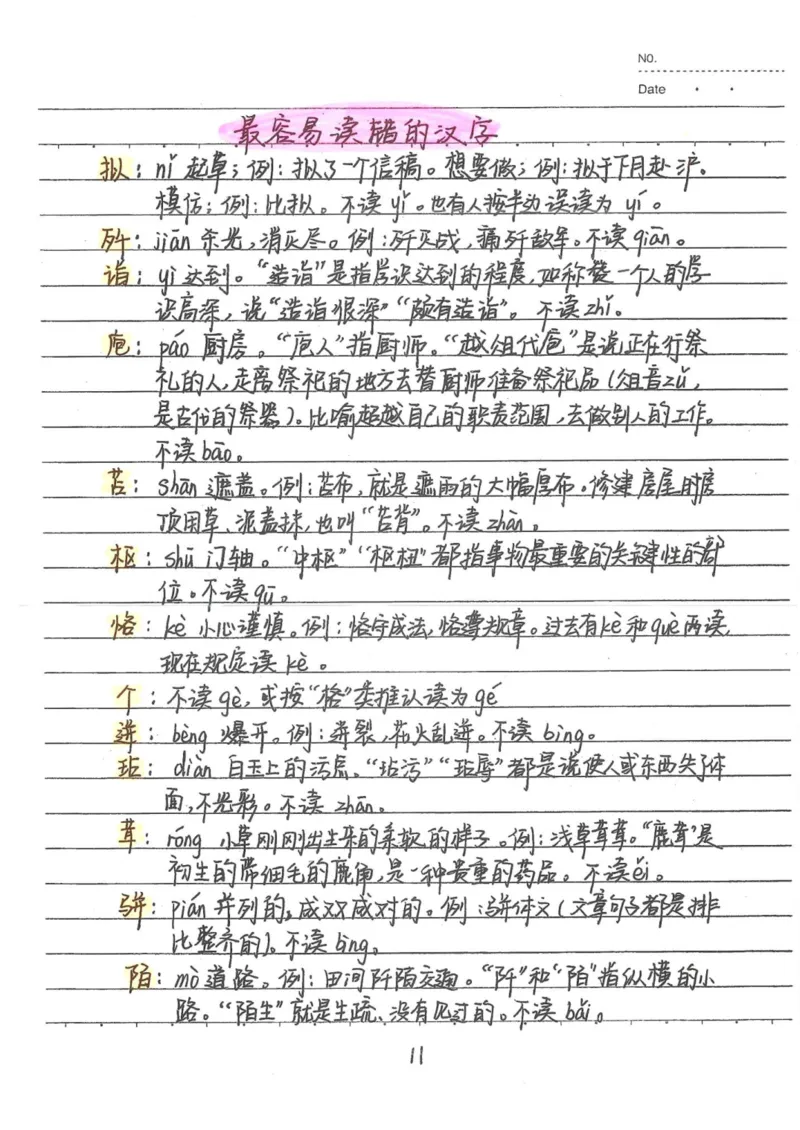 NO.
Date
最容易读错的汉字
拟：nǐ 起草；例：拟了一个信稿。想要做；例：拟于下月赴沪。
模仿；例：比拟。不读yǐ。也有人按半边误读为yí。
歼：jiān 杀光，消灭尽。例：歼灭战，痛歼敌军。不读qiān。
诣：yì 达到。“造诣”是指学识达到的程度，如称赞一个人的学
识高深，说“造诣很深”“颇有造诣”。不读zhǐ。
庖：páo 厨房。“庖人”指厨师。“越俎代庖”是说正在行祭
礼的人，走离祭祀的地方去替厨师准备祭祀品（俎音zǔ，
是古代的祭器）。比喻超越自己的职责范围，去做别人的工作。
不读bāo。
苫：shān 遮盖。例：苫布，就是遮雨的大幅厚布。修建房屋时房
顶用草、泥盖抹，也叫“苫背”。不读zhān。
枢：shū 门轴。“中枢”“枢纽”都指事物最重要的关键性的部
位。不读qū。
恪：kè 小心谨慎。例：恪守成法，恪遵规章。过去有kè和què两读，
现在规定读kè。
个：不读gè，或按“格”类推认读为gé
迸：bèng 爆开。例：迸裂，花火乱迸。不读bìng。
玷：diàn 白玉上的污点。“玷污”“玷辱”都是说使人或东西失了体
面，不光彩。不读zhān。
茸：róng 小草刚刚出生来的柔软的样子。例：浅草茸茸。“鹿茸”是
初生的带细毛的鹿角，是一种贵重的药品。不读ěi。
骈：pián 并列的，成双成对的。例：骈体文（文章句子都是排
比整齐的）。不读bìng。
陌：mò 道路。例：田河阡陌交通。“阡”和“陌”指纵横的小
路。“陌生”就是生疏、没有见过的。不读bǎi。
11